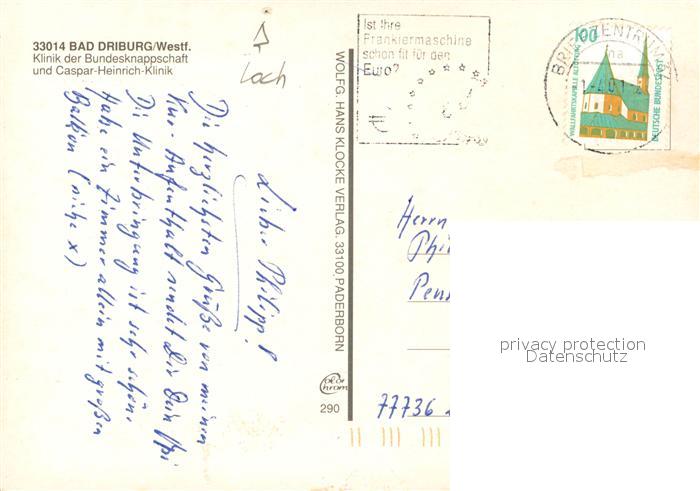 33014 BAD DRIBURG/Westf.
Klinik der Bundesknappschaft
und Caspar-Heinrich-Klinik
Loch
Lieber Philipp!
Die herzlichsten Grüße von meinem
Kur-Aufenthalt sendet Dir Dein Opi
Die Unterbringung ist sehr schön.
Habe ein Zimmer allein mit großen
Balkon (siehe x)
WOLFG. HANS KLOCKE VERLAG. 33100 PADERBORN
Color
chrom
290
Ist Ihre
Frankiermaschine
schon fit für den
Euro?
BRIEFZENTRUM
100
WALLFAHRTSKAPELLE ALTÖTTING
DEUTSCHE BUNDESPOST
Herrn
Phi
Pen
77736
privacy protection
Datenschutz